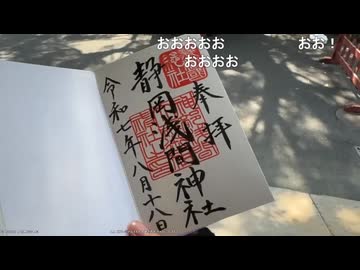 おおおおお
おお！
おおおお
奉拝
静岡浅間神社
令和七年八月十八日